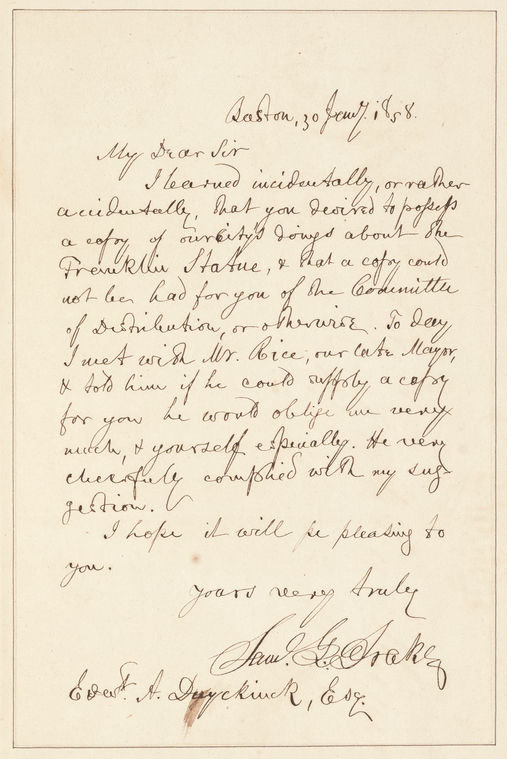 Boston, 30 Jany. 1858.
My Dear Sir
I learned incidentally, or rather
accidentally, that you desired to possess
a copy of our City's doings about the
Franklin Statue, & that a copy could
not be had for you of the Committee
of Distribution, or otherwise. To day
I met with Mr. Rice, our late Mayor,
& told him if he could supply a copy
for you he would oblige me very
much, & yourself especially. He very
cheerfully complied with my sug-
gestion.
I hope it will be pleasing to
you.
yours very truly
Saml. G. Drake
A. Duyckinck, Esq.